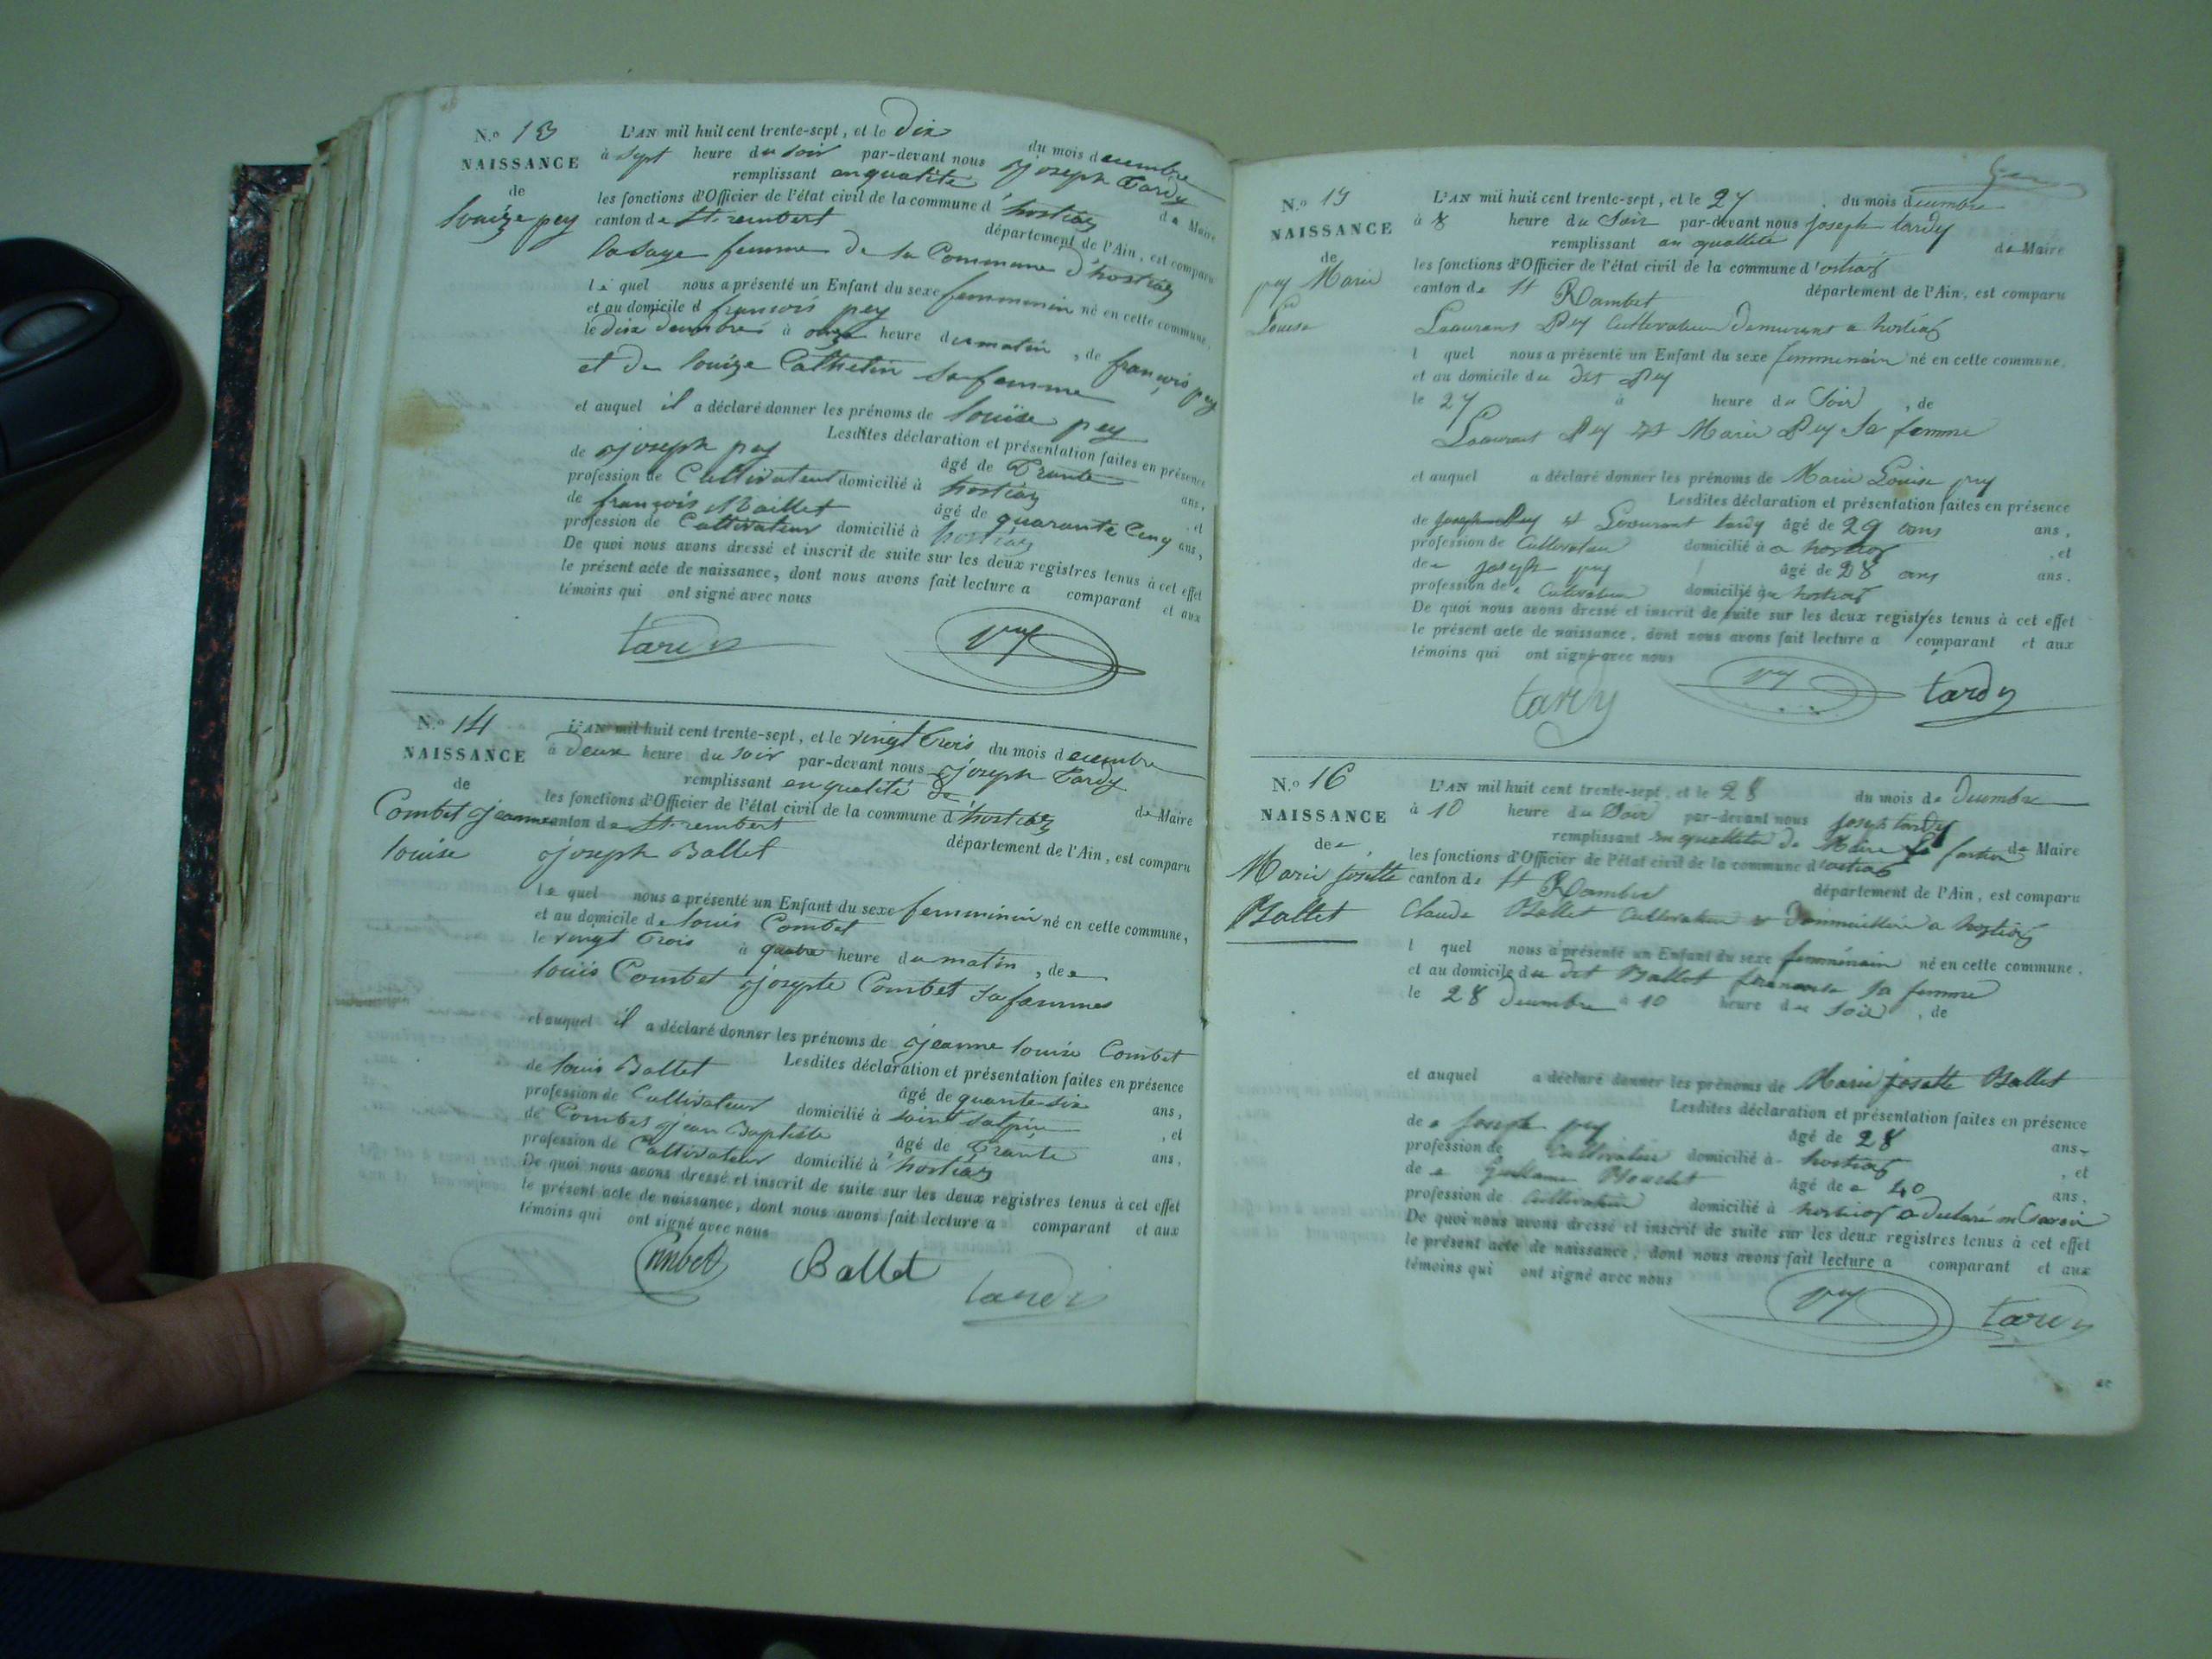 N.o 13
NAISSANCE
de
louize pey
L'AN mil huit cent trente-sept, et le dix du mois decembre
à sept heure du soir par-devant nous joseph Tardy
remplissant en qualité de Maire
les fonctions d'Officier de l'état civil de la commune d'hostiaz
canton de St rembert département de l'Ain, est comparu
la sage femme de la Commune d'hostiaz
le quel nous a présenté un Enfant du sexe femminin né en cette commune,
et au domicile d françois pey
le dix decembre à onze heure du matin, de françois pey
et de louize Cathelin sa femme
et auquel il a déclaré donner les prénoms de louïse pey
Lesdites déclaration et présentation faites en présence
de joseph pey âgé de Trante ans,
profession de Cultivateur domicilié à hostiaz, et
de françois Maillet âgé de quarante Cinq ans,
profession de Cultivateur domicilié à hostiaz
De quoi nous avons dressé et inscrit de suite sur les deux registres tenus à cet effet
le présent acte de naissance, dont nous avons fait lecture a comparant et aux
témoins qui ont signé avec nous
tardy pey
N.o 14
NAISSANCE
de
Combet jeanne
louise
L'AN mil huit cent trente-sept, et le vingt Trois du mois decembre
à deux heure du soir par-devant nous joseph Tardy
remplissant en qualité de de Maire
les fonctions d'Officier de l'état civil de la commune d'hostiaz
canton de St rembert département de l'Ain, est comparu
joseph Ballet
le quel nous a présenté un Enfant du sexe femminin né en cette commune,
et au domicile de louis Combet
le vingt Trois à quatre heure du matin, de
louis Combet josepte Combet sa famme
et auquel il a déclaré donner les prénoms de jeanne louise Combet
Lesdites déclaration et présentation faites en présence
de louis Ballet âgé de quante six ans,
profession de Cultivateur domicilié à saint sulpice, et
de Combet jean Baptiste âgé de Trante ans,
profession de Cultivateur domicilié à hostiaz
De quoi nous avons dressé et inscrit de suite sur les deux registres tenus à cet effet
le présent acte de naissance, dont nous avons fait lecture a comparant et aux
témoins qui ont signé avec nous
Combet Ballet tardy
N.o 15
NAISSANCE
de
pey Marie
Louise
L'AN mil huit cent trente-sept, et le 27 du mois decembre
à 8 heure du Soir par-devant nous joseph tardy
remplissant en quallite de Maire
les fonctions d'Officier de l'état civil de la commune d'ostiaz
canton de St Rambet département de l'Ain, est comparu
Laurans Pey Cultivateur demurant a hostiaz
l quel nous a présenté un Enfant du sexe femmenain né en cette commune,
et au domicile du dit Pey
le 27 à heure du Soir, de
Laurent Pey et Marie Pey Sa femme
et auquel a déclaré donner les prénoms de Marie Louise pey
Lesdites déclaration et présentation faites en présence
de joseph Pey et Laurant tardy âgé de 29 ans ans,
profession de Cultivateur domicilié à a hostiaz, et
de joseph pey âgé de 28 ans ans,
profession de Cultivateur domicilié à hostiaz
De quoi nous avons dressé et inscrit de suite sur les deux registres tenus à cet effet
le présent acte de naissance, dont nous avons fait lecture a comparant et aux
témoins qui ont signé avec nous
tardy pey tardy
N.o 16
NAISSANCE
de
Marie josette
Ballet
L'AN mil huit cent trente-sept, et le 28 du mois de Decembre
à 10 heure du Soir par-devant nous joseph tardy
remplissant en quallite de Maire de Maire
les fonctions d'Officier de l'état civil de la commune d'ostiaz
canton de St Rambet département de l'Ain, est comparu
Claude Ballet Cultivateur a hostiaz
l quel nous a présenté un Enfant du sexe femmenain né en cette commune,
et au domicile du dit Ballet sa femme
le 28 Decembre à 10 heure du soir, de
et auquel a déclaré donner les prénoms de Marie josette Ballet
Lesdites déclaration et présentation faites en présence
de joseph pey âgé de 28 ans,
profession de Cultivateur domicilié à hostiaz, et
de âgé de 40 ans,
profession de Cultivateur domicilié à hostiaz a declaré
De quoi nous avons dressé et inscrit de suite sur les deux registres tenus à cet effet
le présent acte de naissance, dont nous avons fait lecture a comparant et aux
témoins qui ont signé avec nous
pey tardy